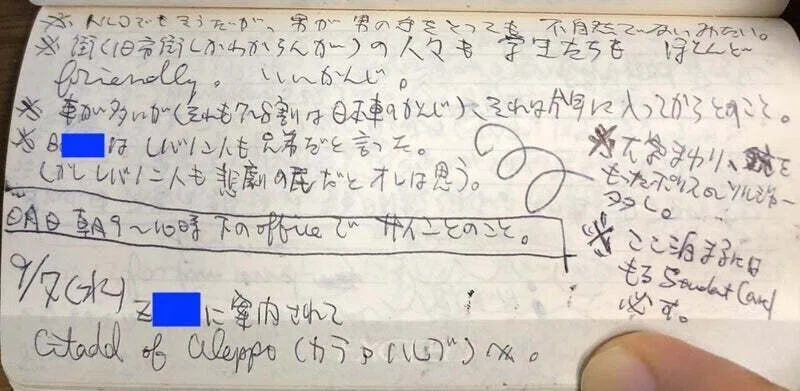 ※ トルコでもそうだが、男が男の手をとっても 不自然でないみたい。
※ 街(旧市街しかわからんが)の人々も 学生たちも ほとんど
friendly。 いいかんじ。
※ 車が多いが(それも7〜8割は日本車のかんじ)、それは今年に入ってからとのこと。
※ B は レバノン人も兄弟だと言った。
しかし レバノン人も 悲劇の民だと オレは思う。
朝9〜10時 下のofficeで サインとのこと。
※ 大学まわり、銃を
もったポリス or ソルジャー
多し。
※ ここ泊まるには
Student Card
必ず。
9/7(水)
Z に案内されて
Citadel of Aleppo (カラアハルブ)へ。